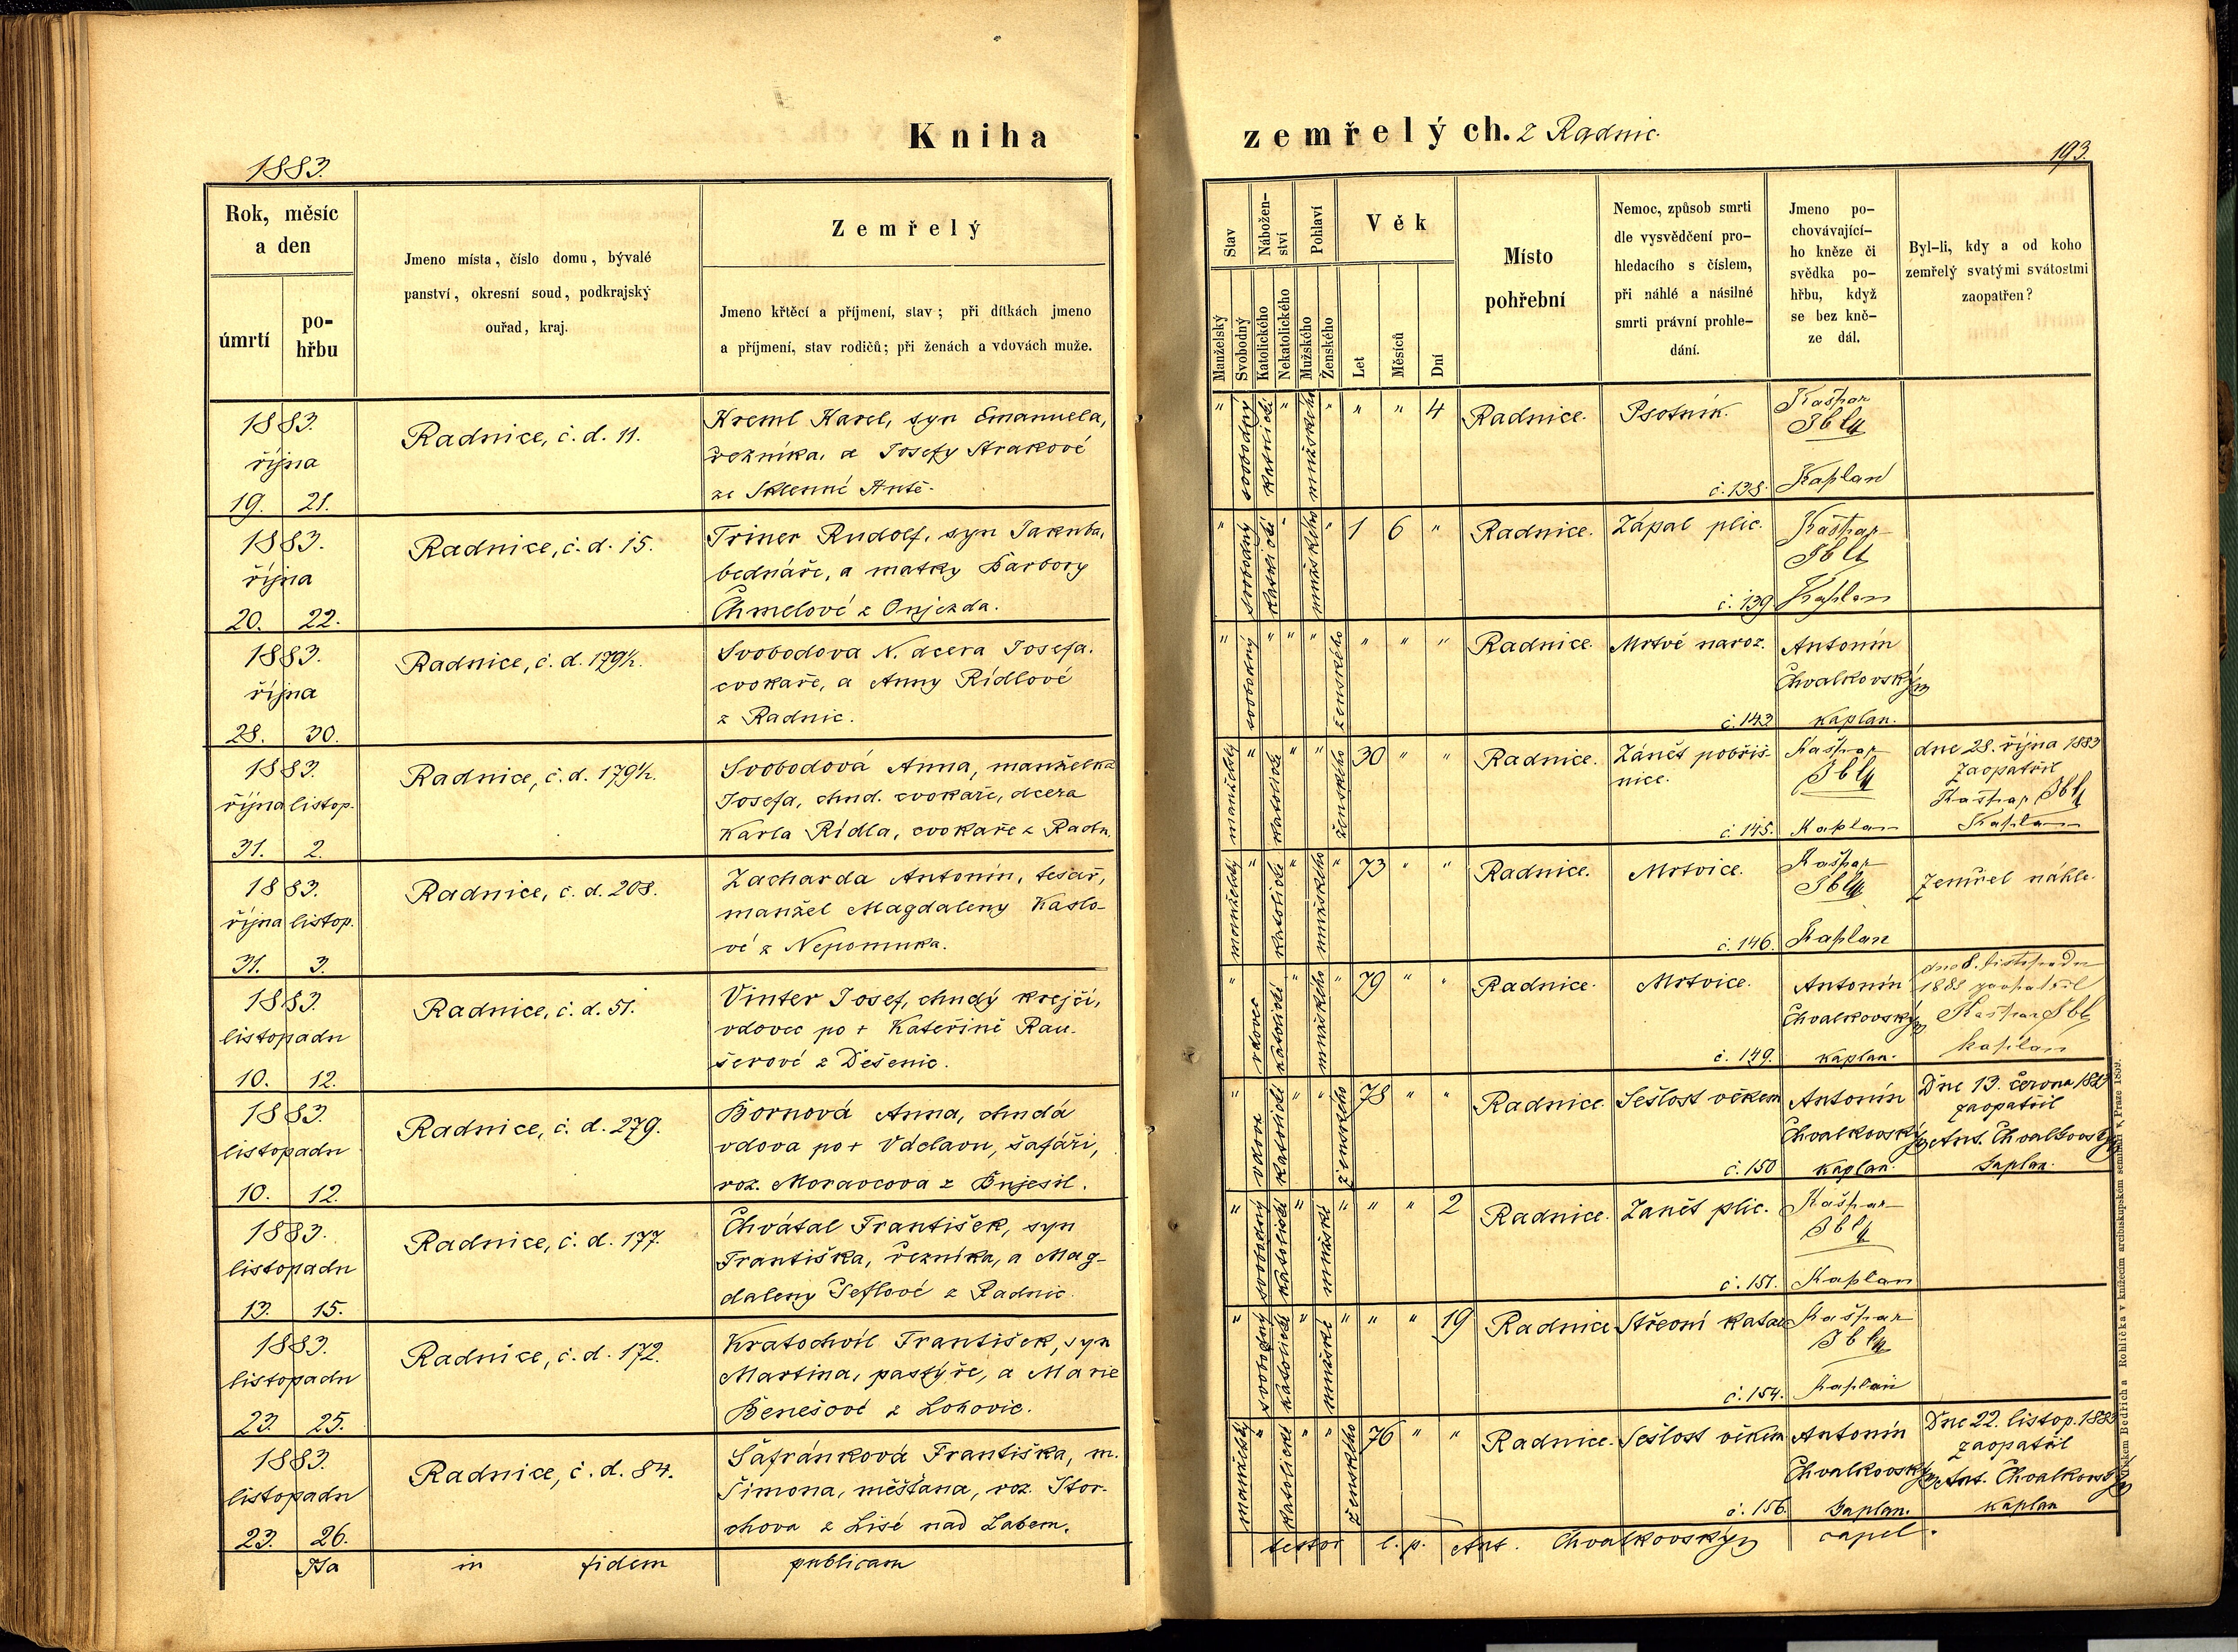 Kniha
zemřelých. z Radnic.
1883.
193.
Rok, měsíc
a den
úmrtí
po-
hřbu
Jmeno místa, číslo domu, bývalé
panství, okresní soud, podkrajský
ouřad, kraj.
Zemřelý
Jmeno křtěcí a příjmení, stav; při dítkách jmeno
a příjmení, stav rodičů; při ženách a vdovách muže.
Stav
Manželský
Svobodný
Nábožen-
ství
Katolického
Nekatolického
Pohlaví
Mužského
Ženského
Věk
Let
Měsíců
Dní
Místo
pohřební
Nemoc, způsob smrti
dle vysvědčení pro-
hledacího s číslem,
při náhlé a násilné
smrti právní prohle-
dání.
Jmeno po-
chovávající-
ho kněze či
svědka po-
hřbu, když
se bez kně-
ze dál.
Byl-li, kdy a od koho
zemřelý svatými svátostmi
zaopatřen?
1883.
října
19. 21.
Radnice, č. d. 11.
Kreml Karel, syn Emanuela,
řezníka, a Josefy Strakové
ze Sklenné
" svobodný katolické " mužského " " " 4 Radnice. Psotník.
č. 138.
Kašpar
Ibl
Kaplan
1883.
října
20. 22.
Radnice, č. d. 15.
Triner Rudolf, syn Jakuba,
bednáře, a matky Barbory
Chmelové z Oujezda.
" svobodný katolické " mužského " 1 6 " Radnice. Zápal plic.
č. 139
Kašpar
Ibl
Kaplan
1883.
října
28. 30.
Radnice, č. d. 179½.
Svobodova N. dcera Josefa.
cvokaře, a Anny Rídlové
z Radnic.
" svobodný " " " ženského " " " Radnice. Mrtvě naroz.
č. 143
Antonín
Chvalkovský
kaplan.
1883.
října listop.
31. 2.
Radnice, č. d. 179½.
Svobodová Anna, manželka
Josefa, chud. cvokaře, dcera
Karla Rídla, cvokaře z Radn.
manželský " katolické " " ženského 30 " " Radnice. Zánět pobřiš-
nice.
č. 145.
Kašpar
Ibl
Kaplan
dne 28. října 1883
zaopatřil
Kašpar Ibl
Kaplan
1883.
října listop.
31. 3.
Radnice, č. d. 208.
Zacharda Antonín, tesař,
manžel Magdaleny Kaslo-
vé z Nepomuka.
manželský " katolické " mužského " 73 " " Radnice. Mrtvice.
č. 146.
Kašpar
Ibl
Kaplan
Zemřel náhle.
1883.
listopadu
10. 12.
Radnice, č. d. 51.
Vinter Josef, chudý krejčí,
vdovec po + Kateřině Rau-
šerové z Dešenic.
" vdovec katolické " mužského " 79 " " Radnice. Mrtvice.
č. 149.
Antonín
Chvalkovský
kaplan.
dne 8. listopadu
1883 zaopatřil
Kašpar Ibl
kaplan
1883.
listopadu
10. 12.
Radnice, č. d. 279.
Bornová Anna, chudá
vdova po + Václavu, šafáři,
roz. Moravcova z Bujesil.
" vdova katolické " " ženského 78 " " Radnice. Sešlost věkem
č. 150
Antonín
Chvalkovský
kaplan.
Dne 13. června 1883
zaopatřil
Ant. Chvalkovský
kaplan.
1883.
listopadu
13. 15.
Radnice, č. d. 177.
Chvátal František, syn
Františka, řezníka, a Mag-
daleny Teflové z Radnic.
" svobodný katolické " mužské " " " 2 Radnice. Zanět plic.
č. 151.
Kašpar
Ibl
Kaplan
1883.
listopadu
23. 25.
Radnice, č. d. 172.
Kratochvíl František, syn
Martina, pastýře, a Marie
Benešové z Lohovic.
" svobodný katolické " mužské " " " 19 Radnice Střevní katar
č. 154.
Kašpar
Ibl
Kaplan
1883.
listopadu
23. 26.
Radnice, č. d. 84.
Šafránková Františka, m.
Šimona, měšťana, roz. Štor-
chova z Lisé nad Labem.
manželský " katolické " " ženského 76 " " Radnice. Sešlost věkem
č. 156.
Antonín
Chvalkovský
kaplan.
Dne 22. listop. 1883
zaopatřil
Ant. Chvalkovský
kaplan
Ita in fidem publicam
testor l. p. Ant. Chvalkovský capel.
Tiskem Bedřicha Rohlíčka v knížecím arcibiskupském semináři v Praze 1859.